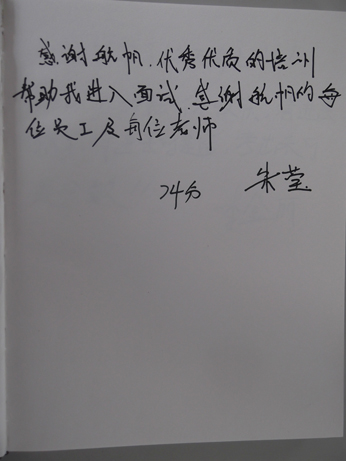 感谢航帆，优秀优质的培训
帮助我进入面试，感谢航帆的每
位员工及每位老师
74分 朱莹